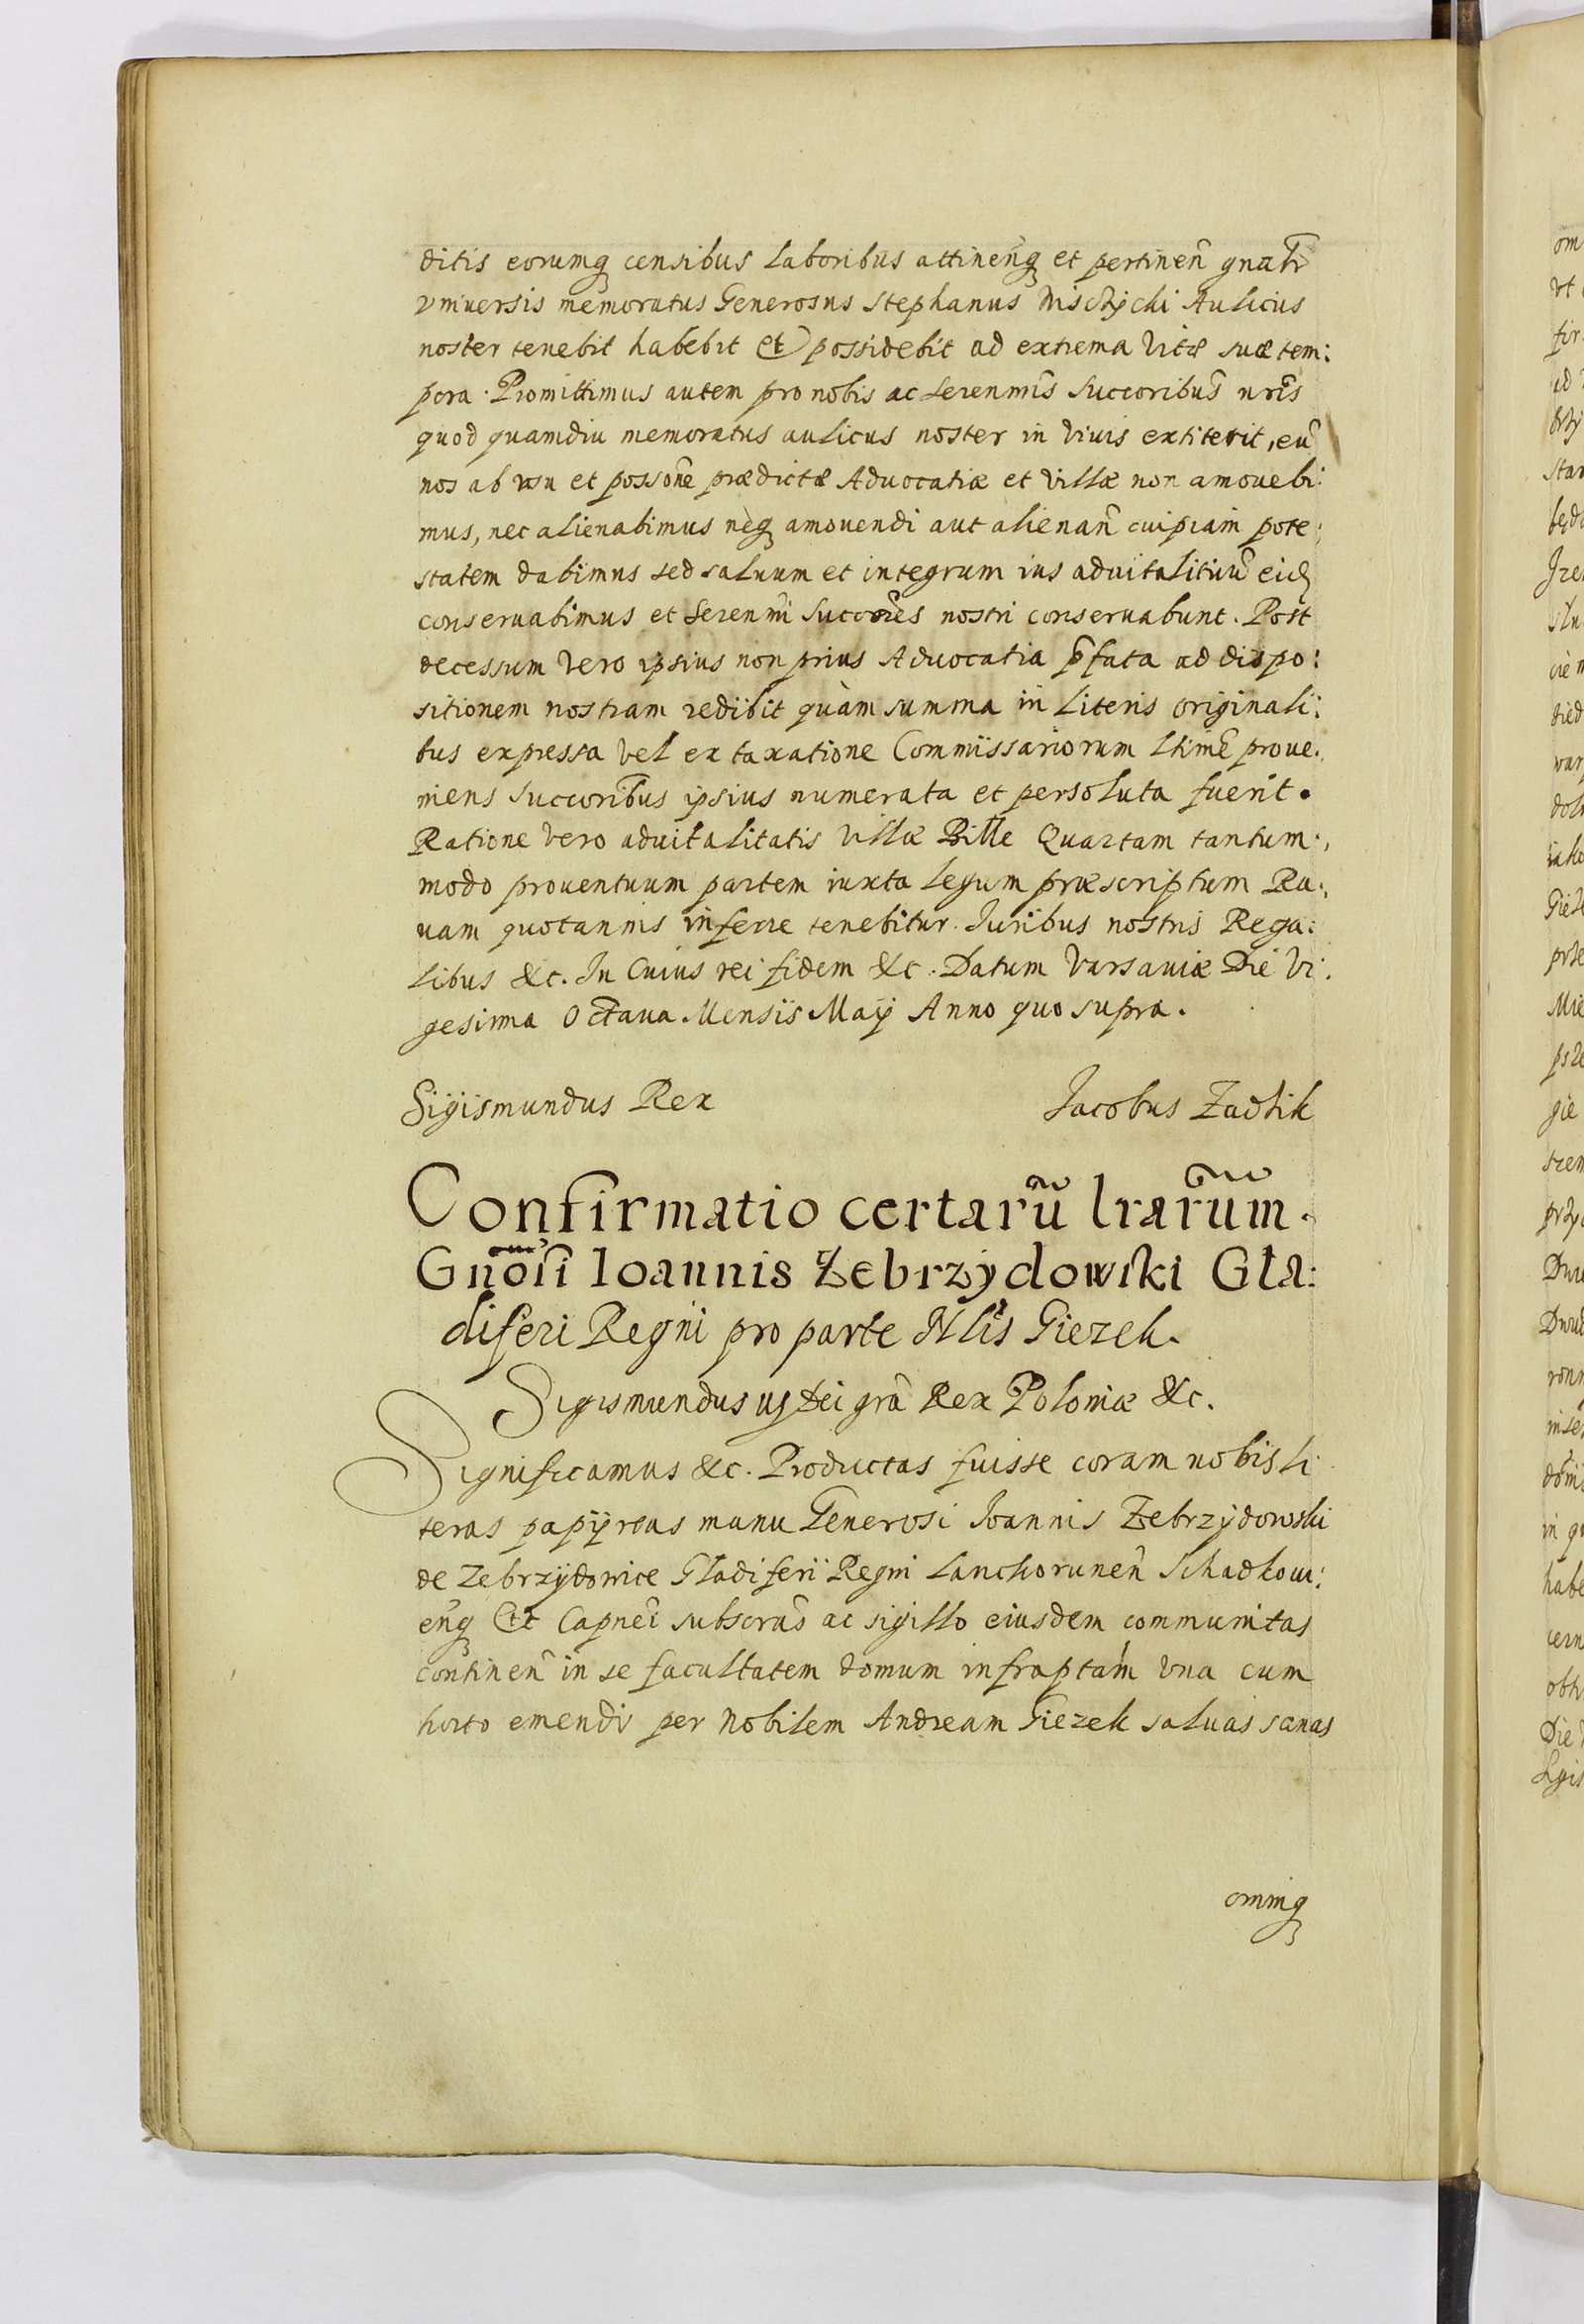 ditis eorumq censibus laboribus attinenq̃ et pertineñ gnalr̃
vniuersis memoratus Generosus Stephanus Aulicus
noster tenebit habebit et possidebit ad extrema vitæ suæ tem:
pora. Promittimus autem pro nobis ac Serenmis̃ Succoribus̃ nrĩs
quod quamdiu memoratus aulicus noster in viuis extiterit, eũ
nos ab vsu et possonẽ prædictæ Aduocatiæ et villæ non amouebi:
mus, nec alienabimus neq amouendi aut alienañ cuipiam pote:
statem dabimus sed saluum et integrum ius aduitalitiũ eid
conseruabimus et Serenmĩ Succorẽs nostri conseruabunt. Post
decessum vero ipsius non prius Aduocatia p̃fata ad dispo:
sitionem nostram redibit quàm summa in literis originali:
bus expressa vel ex taxatione Commissariorum ltimẽ proue:
niens Succoribũs ipsius numerata et persoluta fuerit.
Ratione vero aduitalitatis villæ Bille Quartam tantum:
modo prouentuum partem iuxta legum præscriptum Ra:
uam quotannis inferre tenebitur. Iuribus nostris Rega:
libus &c. In Cuius rei fidem &c. Datum Varsauiæ Die Vi:
gesima Octaua Mensis Maij Anno quo supra.
Sigismundus Rex Jacobus Zadzik
Confirmatio certarũ lrarũm
Gnõsi Ioannis Zebrzydowski Gla:
diferi Regni pro parte Nlĩs Giezek.
Sigismundus 3 Dei grã Rex Poloniæ &c.
Significamus &c. Productas fuisse coram nobis li
teras papyreas manu Generosi Joannis Zebrzydowski
de Zebrzydowice Gladiferi Regni Lanckoruneñ Schadkow:
enq̃ Et subscras̃ ac sigillo eiusdem communitas
continen̄ in se facultatem domum infraptam̃ vna cum
horto emendi per Nobilem Andream Giezek saluas sanas
omniq